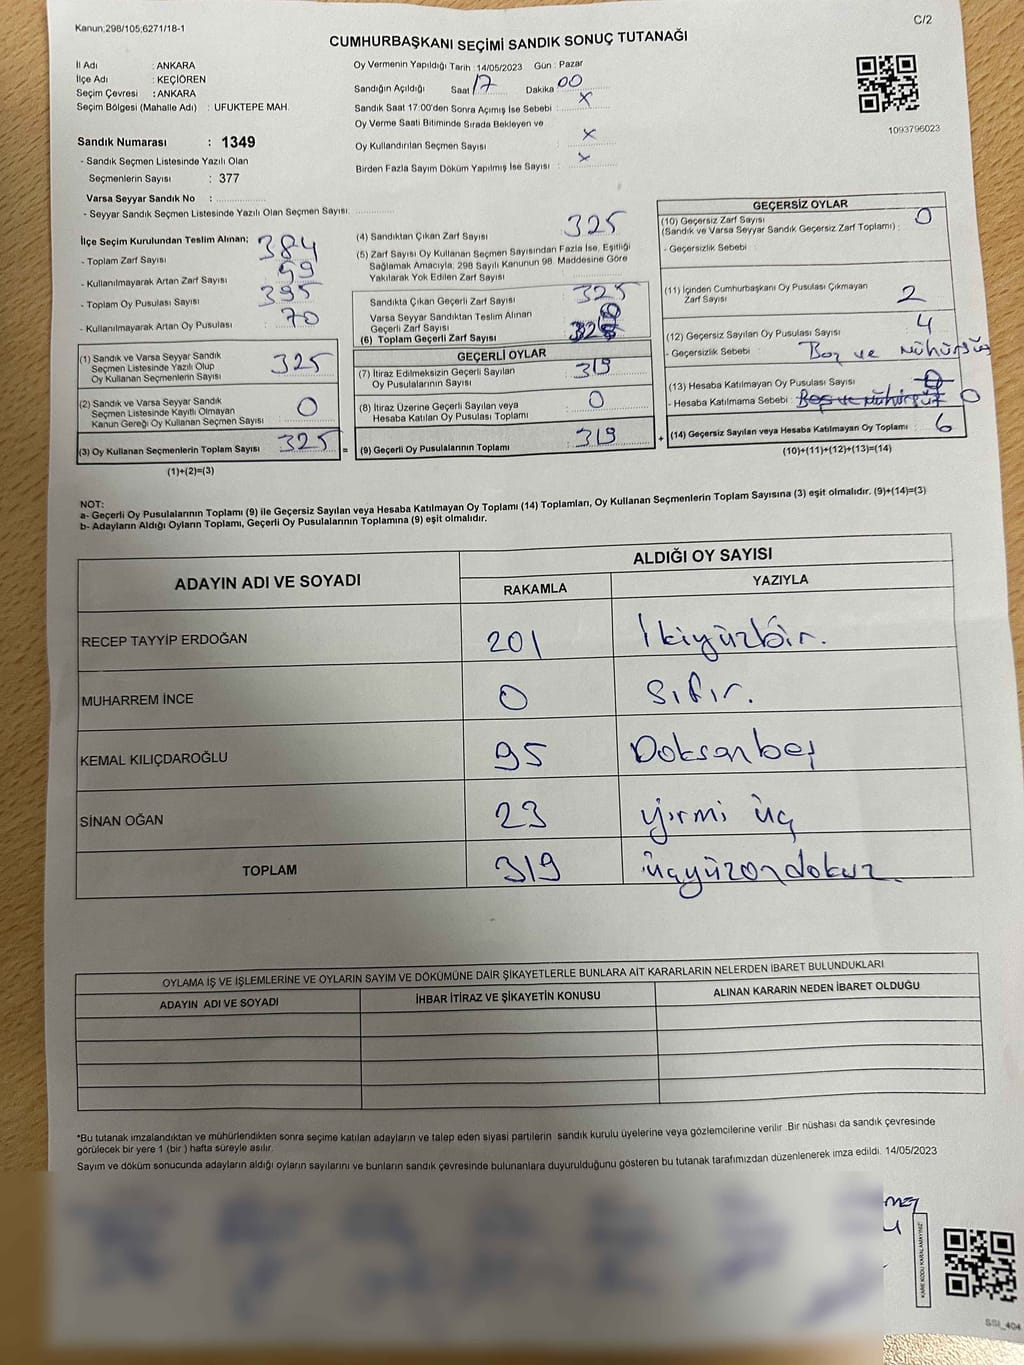 Kanun;298/105;6271/18-1
C/2
CUMHURBAŞKANI SEÇİMİ SANDIK SONUÇ TUTANAĞI
İl Adı : ANKARA
İlçe Adı : KEÇİÖREN
Seçim Çevresi : ANKARA
Seçim Bölgesi (Mahalle Adı) : UFUKTEPE MAH.
Sandık Numarası : 1349
- Sandık Seçmen Listesinde Yazılı Olan
Seçmenlerin Sayısı : 377
Varsa Seyyar Sandık No :
- Seyyar Sandık Seçmen Listesinde Yazılı Olan Seçmen Sayısı:
Oy Vermenin Yapıldığı Tarih : 14/05/2023 Gün : Pazar
Sandığın Açıldığı Saat 17 Dakika 00
Sandık Saat 17:00'den Sonra Açımış İse Sebebi : x
Oy Verme Saati Bitiminde Sırada Bekleyen ve
Oy Kullandırılan Seçmen Sayısı x
Birden Fazla Sayım Döküm Yapılmış İse Sayısı : x
1093796023
İlçe Seçim Kurulundan Teslim Alınan;
- Toplam Zarf Sayısı : 384
- Kullanılmayarak Artan Zarf Sayısı : 59
- Toplam Oy Pusulası Sayısı : 395
- Kullanılmayarak Artan Oy Pusulası : 70
(1) Sandık ve Varsa Seyyar Sandık
Seçmen Listesinde Yazılı Olup
Oy Kullanan Seçmenlerin Sayısı 325
(2) Sandık ve Varsa Seyyar Sandık
Seçmen Listesinde Kayıtlı Olmayan
Kanun Gereği Oy Kullanan Seçmen Sayısı 0
(3) Oy Kullanan Seçmenlerin Toplam Sayısı 325 =
(1)+(2)=(3)
(4) Sandıktan Çıkan Zarf Sayısı 325
(5) Zarf Sayısı Oy Kullanan Seçmen Sayısından Fazla İse, Eşitliği
Sağlamak Amacıyla, 298 Sayılı Kanunun 98. Maddesine Göre
Yakılarak Yok Edilen Zarf Sayısı
Sandıkta Çıkan Geçerli Zarf Sayısı 325
Varsa Seyyar Sandıktan Teslim Alınan
Geçerli Zarf Sayısı 0
(6) Toplam Geçerli Zarf Sayısı 325
GEÇERLİ OYLAR
(7) İtiraz Edilmeksizin Geçerli Sayılan
Oy Pusulalarının Sayısı 319
(8) İtiraz Üzerine Geçerli Sayılan veya
Hesaba Katılan Oy Pusulası Toplamı 0
(9) Geçerli Oy Pusulalarının Toplamı 319 +
GEÇERSİZ OYLAR
(10) Geçersiz Zarf Sayısı 0
(Sandık ve Varsa Seyyar Sandık Geçersiz Zarf Toplamı) :
- Geçersizlik Sebebi :
(11) İçinden Cumhurbaşkanı Oy Pusulası Çıkmayan
Zarf Sayısı 2
(12) Geçersiz Sayılan Oy Pusulası Sayısı 4
- Geçersizlik Sebebi : Boş ve Mühürsüz
(13) Hesaba Katılmayan Oy Pusulası Sayısı 0
- Hesaba Katılmama Sebebi : Boş ve Mühürsüz 0
(14) Geçersiz Sayılan veya Hesaba Katılmayan Oy Toplamı : 6
(10)+(11)+(12)+(13)=(14)
NOT:
a- Geçerli Oy Pusulalarının Toplamı (9) ile Geçersiz Sayılan veya Hesaba Katılmayan Oy Toplamı (14) Toplamları, Oy Kullanan Seçmenlerin Toplam Sayısına (3) eşit olmalıdır. (9)+(14)=(3)
b- Adayların Aldığı Oyların Toplamı, Geçerli Oy Pusulalarının Toplamına (9) eşit olmalıdır.
ADAYIN ADI VE SOYADI
ALDIĞI OY SAYISI
RAKAMLA YAZIYLA
RECEP TAYYİP ERDOĞAN 201 İkiyüzbir.
MUHARREM İNCE 0 Sıfır.
KEMAL KILIÇDAROĞLU 95 Doksanbeş
SİNAN OĞAN 23 yirmi üç
TOPLAM 319 üçyüzondokuz.
OYLAMA İŞ VE İŞLEMLERİNE VE OYLARIN SAYIM VE DÖKÜMÜNE DAİR ŞİKAYETLERLE BUNLARA AİT KARARLARIN NELERDEN İBARET BULUNDUKLARI
ADAYIN ADI VE SOYADI İHBAR İTİRAZ VE ŞİKAYETİN KONUSU ALINAN KARARIN NEDEN İBARET OLDUĞU
*Bu tutanak imzalandıktan ve mühürlendikten sonra seçime katılan adayların ve talep eden siyasi partilerin sandık kurulu üyelerine veya gözlemcilerine verilir .Bir nüshası da sandık çevresinde
görülecek bir yere 1 (bir ) hafta süreyle asılır.
Sayım ve döküm sonucunda adayların aldığı oyların sayılarını ve bunların sandık çevresinde bulunanlara duyurulduğunu gösteren bu tutanak tarafımızdan düzenlenerek imza edildi. 14/05/2023
KARE KODU KARALAMAYINIZ
SSI_404